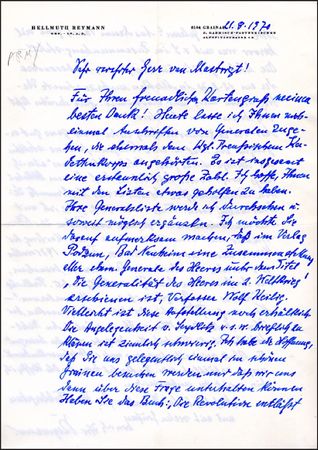 HELLMUTH REYMANN
8104 GRAINAU 21.8.1970
B. GARMISCH-PARTENKIRCHEN
Sehr verehrter Herr van Mastrigt!
Für Ihren freundlichen Kartengruß meinen
besten Dank! Heute lasse ich Ihnen noch
einmal Anschriften von Generalen zuge-
hen, die ehemals dem Kgl. Preußischen Ka-
dettenkorps angehörten. Es ist insgesamt
eine erstaunlich große Zahl. Ich hoffe, Ihnen
mit den Listen etwas geholfen zu haben.
Ihre Generalsliste werde ich durchsehen u.
soweit möglich ergänzen. Ich möchte Sie
darauf aufmerksam machen, daß im Verlag
Podzun, Bad Nauheim eine Zusammenstellung
aller ehem. Generale des Heeres unter dem Titel
"Die Generalität des Heeres im 2. Weltkrieg"
erschienen ist, Verfasser Wolf Keilig.
Vielleicht ist diese Aufstellung noch erhältlich
Die Angelegenheit v. Seydlitz u.s.w. brieflich zu
klären ist ziemlich schwierig. Ich habe die Hoffnung,
daß Sie uns gelegentlich einmal im schönen
Grainau besuchen werden und daß wir uns
dann über diese Frage unterhalten können
Haben Sie das Buch: "Die Revolution entläßt